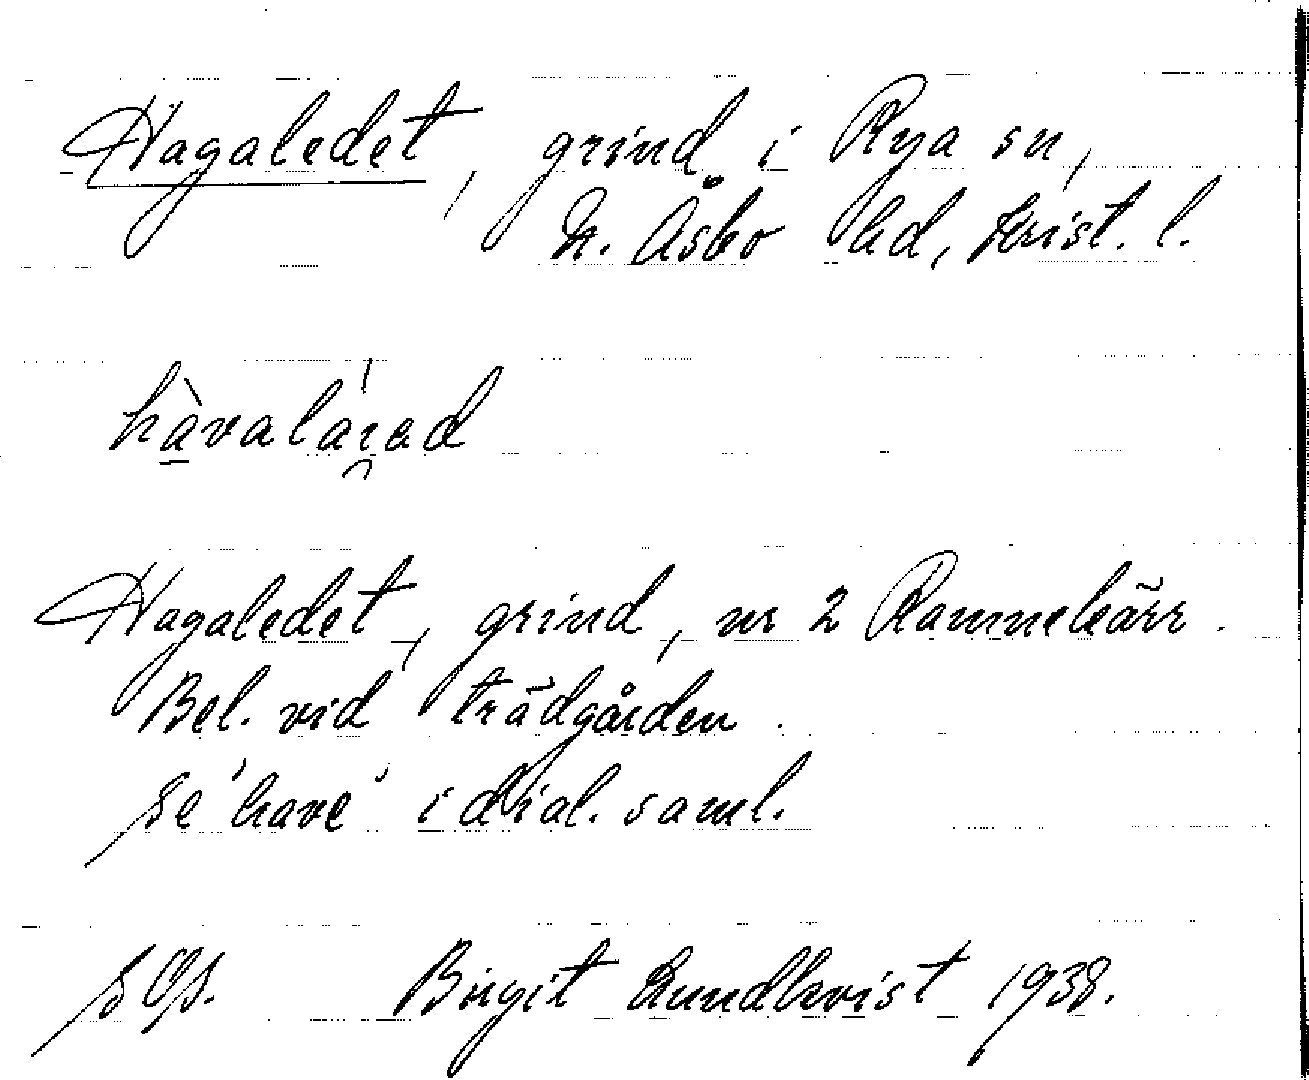 Hagaledet, grind i Rya sn,
N. Åsbo hd, Krist. l.
hàvalái̯ad
Hagaledet, grind, nr 2 Rammekärr.
Bel. vid trädgården.
Se 'have' i dial. saml.
Birgit Lundkvist 1938.